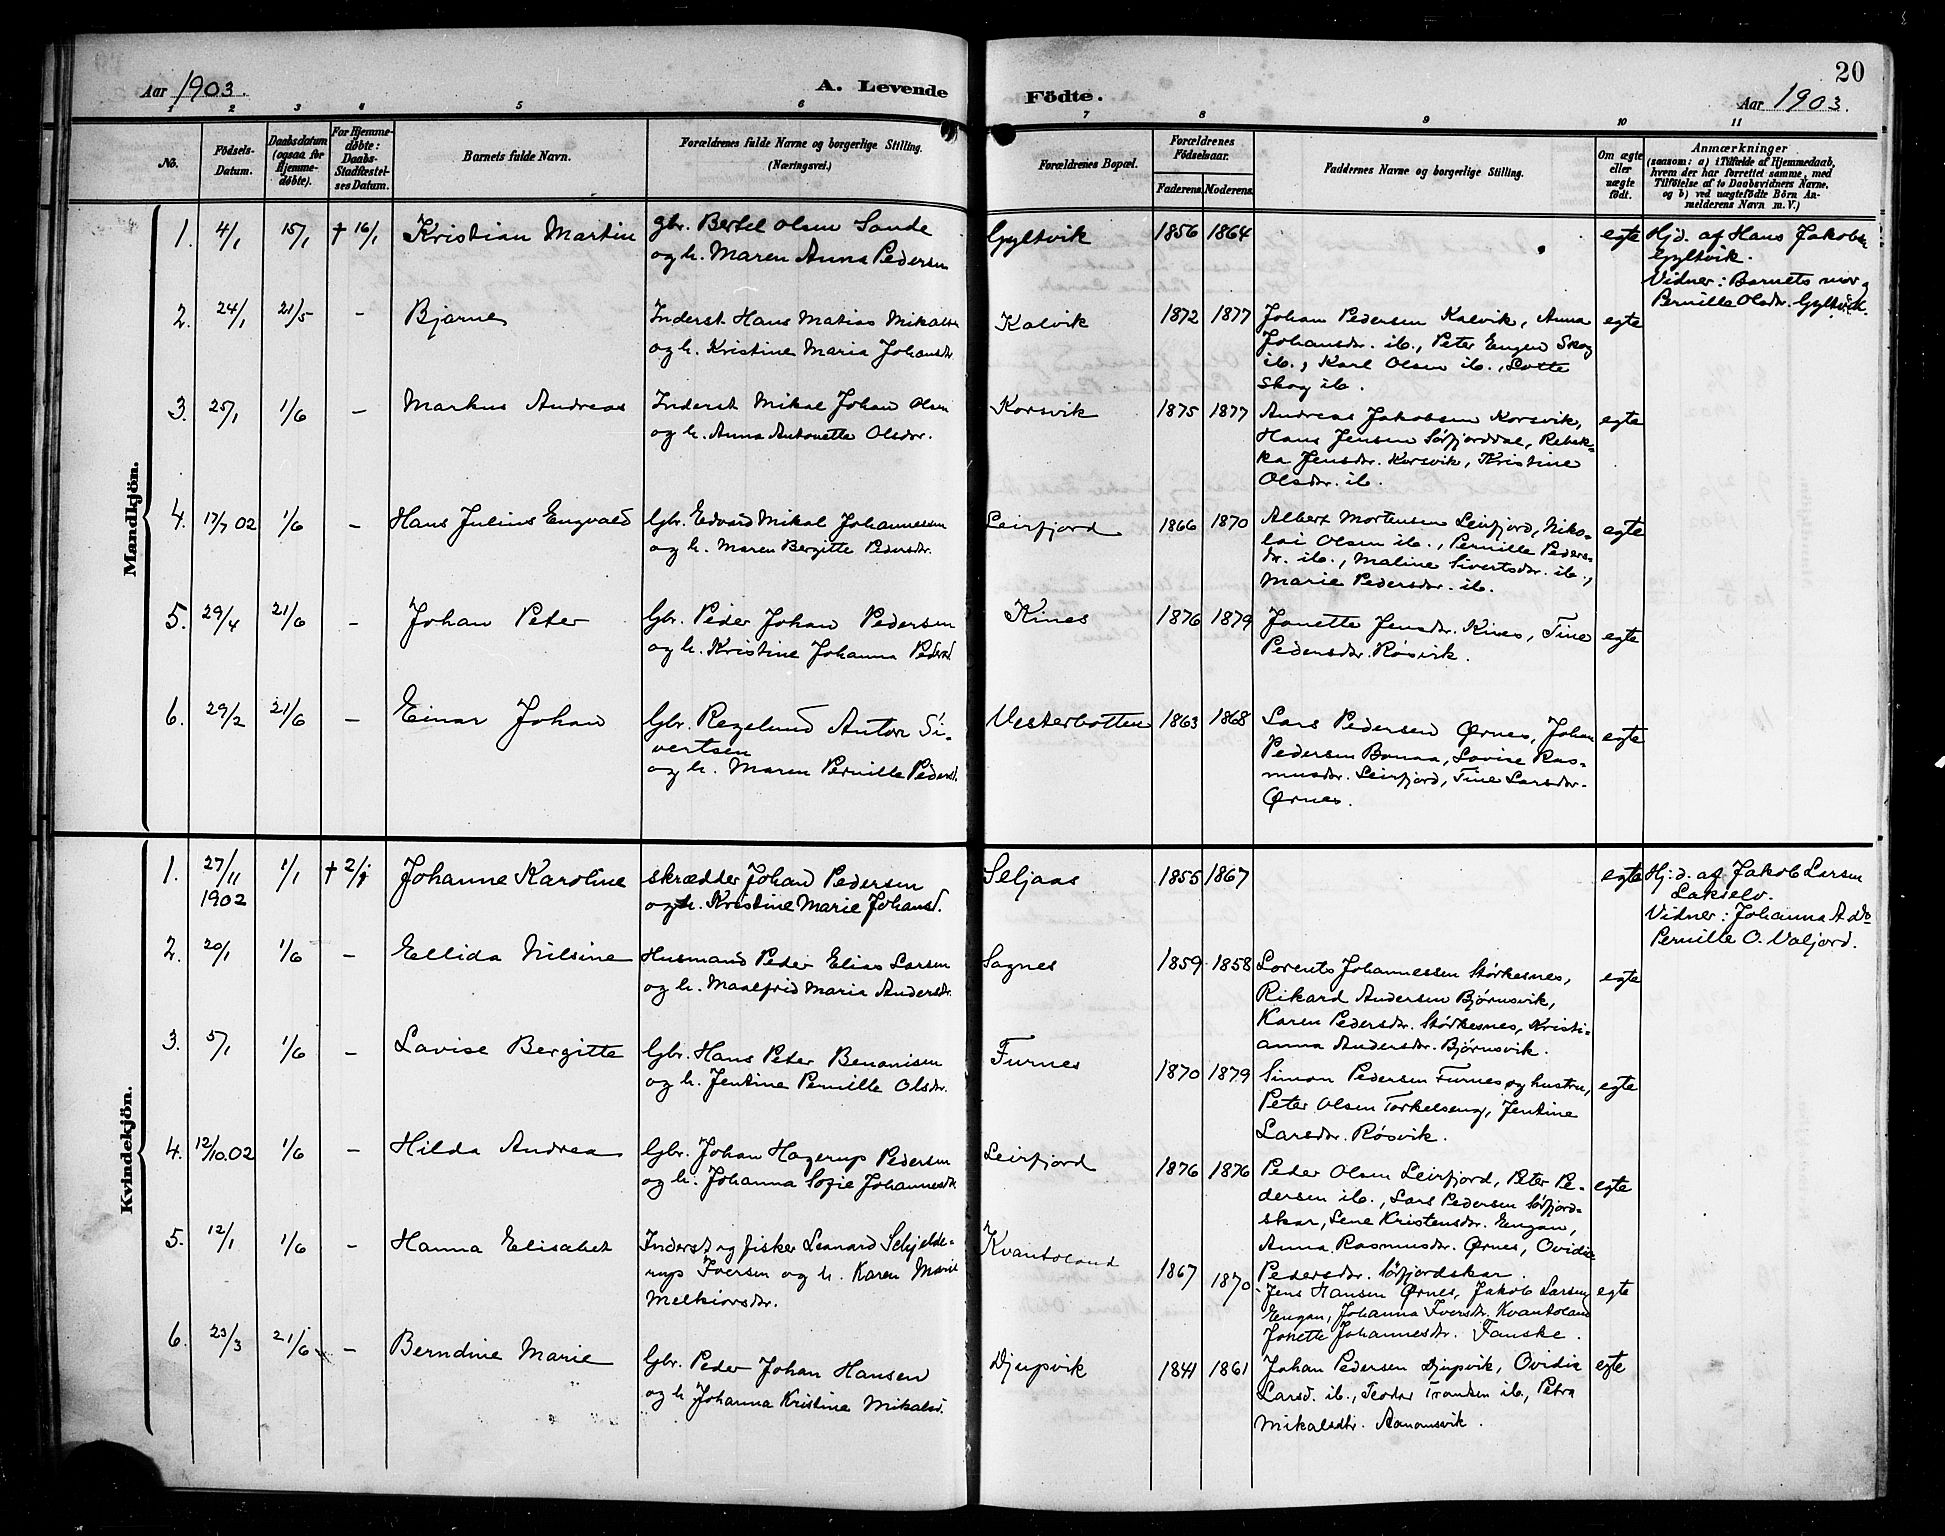 20
Aar 1903.
A. Levende
Födte.
Aar 1903.
1 2 3 4 5 6 7 8 9 10 11
No.
Födsels-
Datum.
Daabsdatum
(ogsaa for
Hjemme-
døbte).
For Hjemme-
døbte:
Daabs-
Stadfæstel-
ses Datum.
Barnets fulde Navn.
Forældrenes fulde Navne og borgerlige Stilling.
(Næringsvei.)
Forældrenes Bopæl.
Forældrenes
Födselsaar.
Faderens. Moderens.
Faddernes Navne og borgerlige Stilling.
Om ægte
eller
uægte
födt.
Anmærkninger
(saasom: a) i Tilfælde af Hjemmedaab,
hvem der har forrettet samme, med
Tilföielse af to Daabsvidners Navne,
og b) ved uægtefödte Börn An-
melderens Navn m. V.)
Mandkjön.
1. 4/1 15/1 † 16/1 Kristian Martin
gbr. Bertel Olsen Sande
og h. Maren Anna Pedersen
Gyltvik 1856 1864 egte
Hjd. af Hans Jakobs
Gyltvik.
Vidner: Barnets mor og
Pernille Olsdr. Gyltvik.
2. 24/1 21/5 – Bjarne
Inderst Hans Matias Mikalsen
og h. Kristine Maria Johansdr.
Kalvik 1872 1877
Johan Pedersen Kalvik, Anna
Johansdr. ib., Peter Engen Skog
ib., Karl Olsen ib., Lotte
Skog ib.
egte
3. 25/1 1/6 – Markus Andreas
Inderst Mikal Johan Olsen
og h. Anna Antonette Olsdr.
Korsvik 1875 1877
Andreas Jakobsen Korsvik,
Hans Jensen Sörfjorddal, Rebek-
ka Jensdr. Korsvik, Kristine
Olsdr. ib.
egte
4. 17/7 02 1/6 – Hans Julius Engvald
Gbr. Edvard Mikal Johannessen
og h. Maren Bergitte Pedersdr.
Leirfjord 1866 1870
Albert Mortensen Leirfjord, Niko-
lai Olsen ib., Pernille Peders-
dr. ib., Maline Sivertsdr. ib.,
Marie Pedersdr. ib.
egte
5. 29/4 21/6 – Johan Peter
Gbr. Peder Johan Pedersen
og h. Kristine Johanna Pedersd
Kines 1876 1879
Jonette Jensdr. Kines, Tine
Pedersdr. Røsvik.
egte
6. 29/2 21/6 – Einar Johan
Gbr. Regelund Anton Si-
vertsen
og h. Maren Pernille Pedersd.
Vesterbotten 1863 1868
Lars Pedersen Ørnes, Johan
Pedersen Bonaa, Lovise Ras-
musdr. Leirfjord, Tine Larsdr.
Ørnes.
egte
Kvindekjön.
1. 27/11 1902 1/1 † 2/1 Johanne Karoline
skrædder Johan Pedersen
og h. Kristine Marie Johansd.
Seljaas 1855 1867 egte
Hj:d. af Jakob Larsen
Lakselv.
Vidner: Johanna A. do
Pernille O. Valjord.
2. 20/1 1/6 – Ellida Nilsine
Husmand Peder Elias Larsen
og h. Maalfrid Maria Andersdr.
Sagnes 1859 1858
Lorents Johannessen Störkesnes,
Rikard Andersen Bjørnsvik,
Karen Pedersdr. Störkesnes, Kristi-
anna Andersdr. Bjørnsvik.
egte
3. 5/1 1/6 – Lavise Bergitte
Gbr. Hans Peter Benonisen
og h. Jentine Pernille Olsdr.
Furnes 1870 1879
Simon Pedersen Furnes og hustru,
Peter Olsen Torkelseng, Jentine
Larsdr. Røsvik.
egte
4. 12/10.02 1/6 – Hilda Andrea
Gbr. Johan Hagerup Pedersen
og h. Johanna Sofie Johannesdr
Leirfjord 1876 1876
Peder Olsen Leirfjord, Peter Pe-
dersen ib., Lars Pedersen Sörfjord-
skar, Lene Kristensdr. Engan,
Anna Rasmusdr. Ørnes, Ovidia
Pedersdr. Sörfjordskar.
egte
5. 12/1 1/6 – Hanna Elisabet
Inderst og fisker Leonard Schjelde-
rup Iversen og h. Karen Marie
Melkiorsdr.
Kvantoland 1867 1870
Jens Hansen Ørnes, Jakob Larsen
Engan, Johanna Iversdr. Kvantoland
Jonette Johannesdr. Fauske.
egte
6. 23/3 21/6 – Berndine Marie
Gbr. Peder Johan Hansen
og h Johanna Kristine Mikalsd.
Djupvik 1841 1861
Johan Pedersen Djupvik, Ovidia
Larsd. ib., Teodor Trondsen ib., Petra
Mikalsdtr. Aanonsvik.
egte